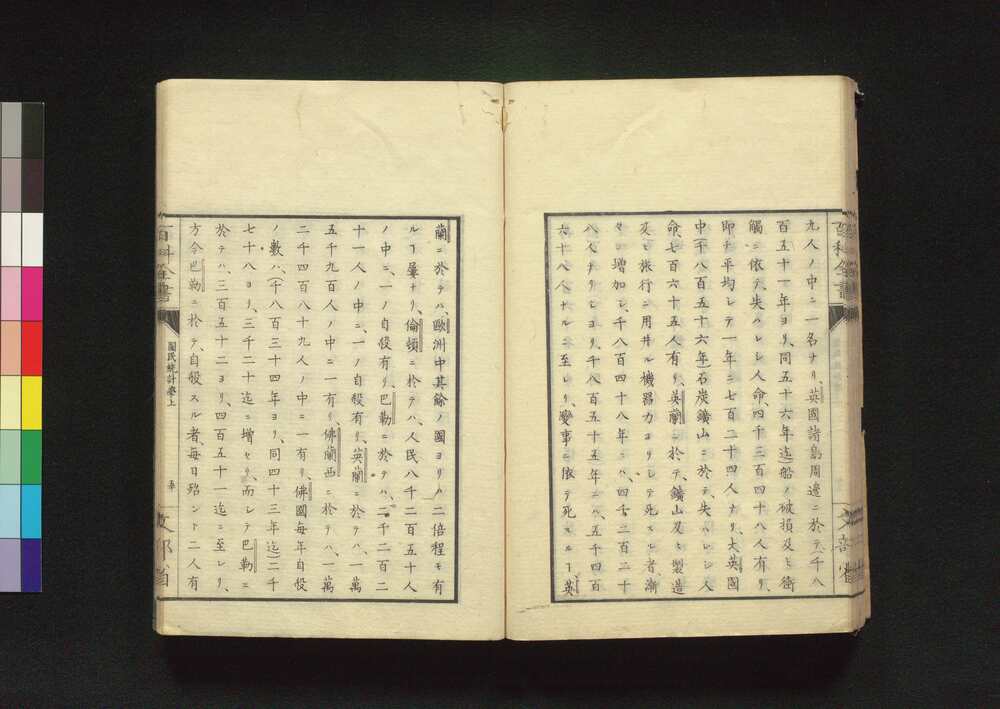 九人ノ中ニ一名ナリ、英國諸島周邊ニ於テ、千八
百五十一年ヨリ、同五十六年迄、船ノ破損及ヒ衝
觸ニ依テ、失ハレシ人命、四千三百四十八人有リ、
即チ平均シテ一年ニ七百二十四人ナリ、大英國
中(千八百五十六年)石炭鑛山ニ於テ、失ハレシ人
命、七百六十五人有リ、英蘭ニ於テ、鑛山及ヒ製造
及ヒ旅行ニ用井ル機器力ヨリシテ死スル者、漸
々ニ増加シ、千八百四十八年ニハ、四千二百二十
八人ナリシヨリ、千八百五十五年ニハ、五千四百
六十八人トナルニ至レリ、變事ニ依テ死スルヿ、英
百科全書
文部省
蘭ニ於テハ、歐洲中其餘ノ國ヨリハ二倍程モ有
ルヿ屢ナリ、倫頓ニ於テハ、人民八千二百五十人
ノ中ニ、一ノ自殺有リ、巴勒ニ於テハ、二千二百二
十一人ノ中ニ、一ノ自殺有リ、英蘭ニ於テハ、一萬
五千九百人ノ中ニ一有リ、佛蘭西ニ於テハ、一萬
二千四百八十九人ノ中ニ一有リ、佛國每年自殺
ノ數ハ、(千八百三十四年ヨリ、同四十三年迄)二千
七十八ヨリ、三千二十迄ニ增セリ、而シテ巴勒ニ
於テハ、三百五十二ヨリ、四百五十一迄ニ至レリ、
方今巴勒ニ於テ、自殺スル者、每日殆ント二人有
百科全書
國民統計學上
五
文部省